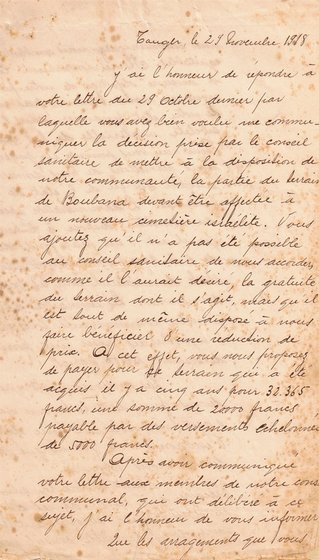 Tanger, le 29 Novembre 1918
J'ai l'honneur de répondre à
votre lettre du 29 Octbre dernier par
laquelle vous avez bien voulu me commu-
niquer la décision prise par le conseil
sanitaire de mettre à la disposition de
notre communauté, la partie du terrain
de Boubana devant être affectée à
un nouveau cimetière israélite. Vous
ajoutez qu'il n'a pas été possible
au conseil sanitaire de nous accorder,
comme il l'aurait désiré, la gratuité
du terrain dont il s'agit, mais qu'il
est tout de même disposé à nous
faire bénéficier d'une réduction de
prix. A cet effet, vous nous proposez
de payer pour ce terrain qui a été
acquis il y a cinq ans pour 32.365
francs, une somme de francs,
payable par des versements échelonnés
de 5000 francs.
Après avoir communiqué
votre lettre aux membres de notre cons
communal, qui ont délibéré à ce
sujet, j'ai l'honneur de vous informer
que les arragements que vous